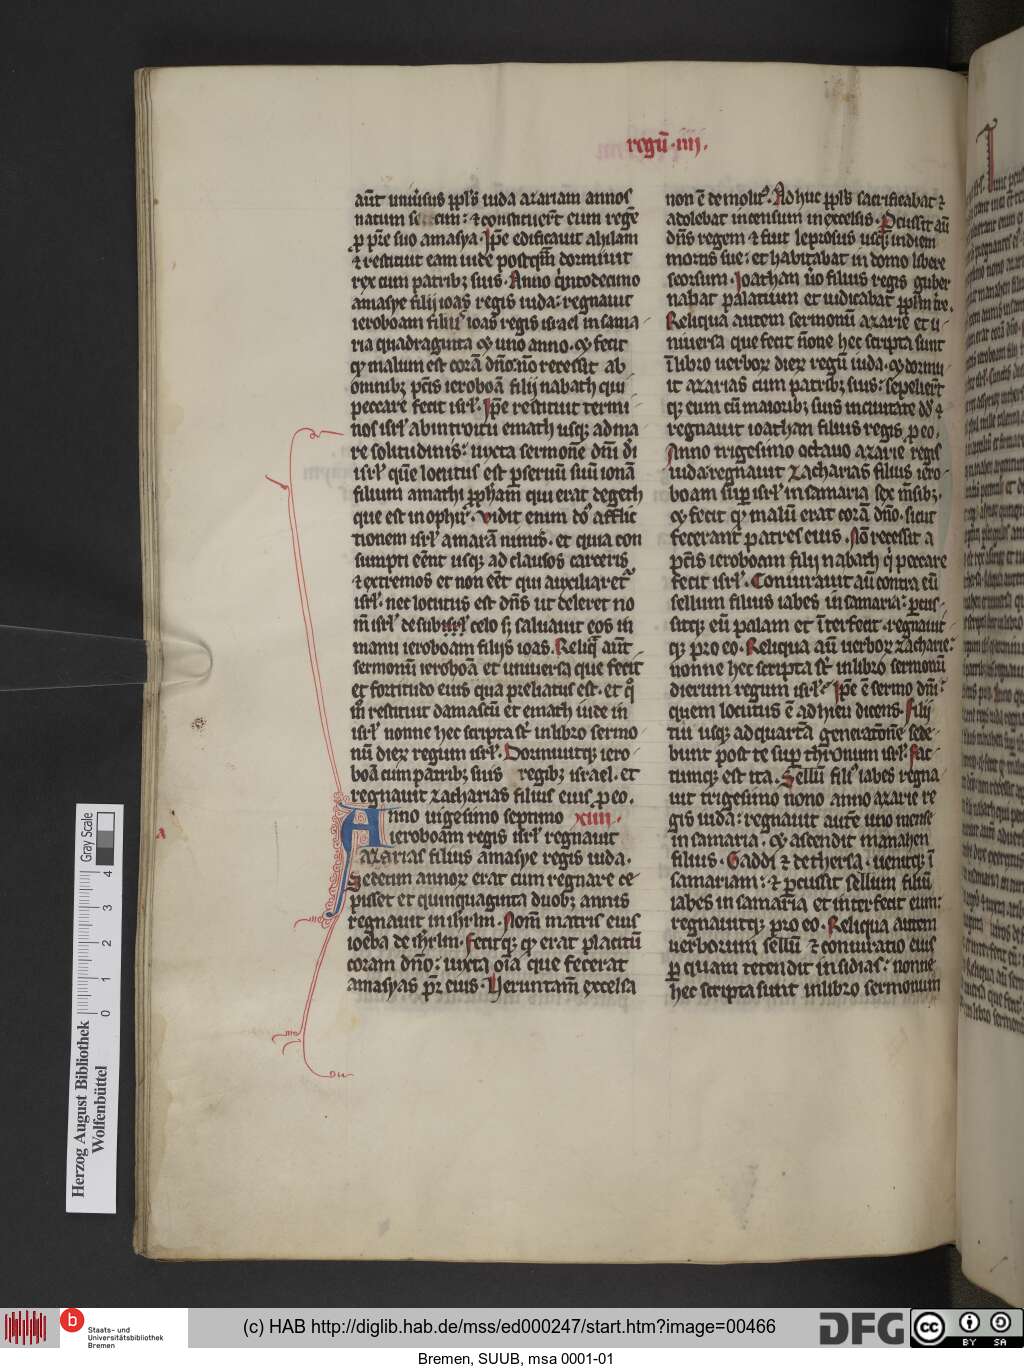 regū·iiii·
aūt uniu'sus ppl's iuda azariam annos
natum se cim: ⁊ constituer̄t eum regē
ꝓ pr̄e suo amasya· Ip̄e edificauit ahilam
⁊ restituit eam iude postquā dormiuit
rex cum patribꝫ suis· Anno qi̇ntodecimo
amasye filij ioas regis iuda: regnauit
ieroboam filiꝰ ioas regis israel in sama
ria quadraginta ⁊ uno anno· ⁊ fecit
qꝫ malum est corā dn̄o: nō recessit ab
omnibꝫ pc̄tis ieroboā filij nabath qui
peccare fecit isrl'· Ip̄e restituit termi
nos isrl' ab introitu emath usqꝫ ad ma
re solitudinis: iuxta sermonē dn̄i di
isrl' quē locutus est p seruū suū ionā
filium amathi pph̄am qui erat de geth
que est in ophir· Vidit enim dn̄s afflic
tionem isrl' amarā nimis· et quia con
sumpti eēnt usqꝫ ad clausos carceris
⁊ extremos et non eēt qui auxiliaret'
isrl'· nec locutus est dn̄s ut deleret no
m̄ isrl' de sub isrl' celo sꝫ saluauit eos in
manu ieroboam filij ioas· Reliq aūt
sermonū ieroboā et uniuersa que fecit
et fortitudo eius qua preliatus est· et q̄
m̄ restituit damascū et emath iude in
isrl' nonne hec scripta st̄ in libro sermo
nū dieꝝ regum isrl'· Dormiuitqꝫ iero
boā cum patribꝫ suis regibꝫ israel· et
regnauit zacharias filius eius ꝓ eo·
Anno uigesimo septimo xiiii·
ieroboam regis isrl' regnauit
azarias filius amasye regis iuda·
Sedecim annoꝝ erat cum regnare ce
pisset et quinquaginta duobꝫ annis
regnauit in ihrlm· Nom̄ matris eius
ioeba de ihrlm· Fecitqꝫ qꝫ erat placitū
coram dn̄o: iuxta oīa que fecerat
amasyas pr̄ eius· Veruntam̄ excelsa
non ē demolitꝰ· Adhuc ppl's sacrificabat ⁊
adolebat incensum in excelsis· Pcussit aū
dn̄s regem ⁊ fuit leprosus usqꝫ in diem
mortis sue: et habitabat in domo libere
seorsum· Ioathan u̇o filius regis guber
nabat palatium et iudicabat ppl'm tre·
Reliqua autem sermonū azarie et u
niuersa que fecit n̄one hec scripta sunt
ī libro uerboꝝ dieꝝ regū iuda· ⁊ dormi
it azarias cum patribꝫ suis: sepelier̄t
qꝫ eum cū maioribꝫ suis in ciuitate dd̄ ⁊
regnauit ioathan filius regis ꝓ eo·
Anno trigesimo octauo azarie regis
iuda: regnauit zacharias filius iero
boam sup isrl' in samaria sex m̄sibꝫ·
⁊ fecit qꝫ malū erat corā dn̄o· sicut
fecerant patres eius· Nō recessit a
pc̄tis ieroboam filij nabath q peccare
fecit isrl'· Coniurauit aū contra eū
sellum filius iabes in samaria: pcus
sitqꝫ eū palam et īterfecit· regnauit
qꝫ pro eo· Reliqua aū uerboꝝ zacharie:
nonne hec scripta st̄ in libro sermonū
dierum regum isrl': Ip̄e ē sermo dn̄i:
quem locutus ē ad hieu dicens· Filij
tui usqꝫ ad quartā generatōnē sede
bunt post te sup thronum isrl'· fac
tumqꝫ est ita· Sellū filiꝰ iabes regna
uit trigesimo nono anno azarie re
gis iuda: regnauit autē uno mense
in samaria· ⁊ ascendit manahen
filius· Gaddi ⁊ de thersa· uenitqꝫ ī
samariam: ⁊ pcussit sellum filiū
iabes in samaria et interfecit eum:
regnauitqꝫ pro eo· Reliqua autem
uerborum sellū ⁊ coniuratio eius
p quam tetendit insidias: nonne
hec scripta sunt in libro sermonum
a
Gray Scale
0 1 2 3 4
Herzog August Bibliothek
Wolfenbüttel
b
Staats- und
Universitätsbibliothek
Bremen
(c) HAB http://diglib.hab.de/mss/ed000247/start.htm?image=00466
DFG
cc
BY SA
Bremen, SUUB, msa 0001-01